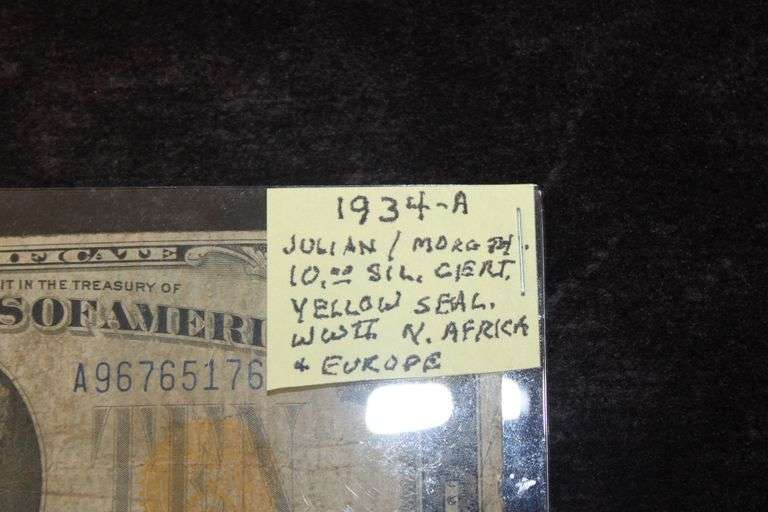 1934-A
JULIAN / MORGTH.
10.00 SIL. CERT.
YELLOW SEAL.
WWII N. AFRICA
& EUROPE
IFICATE
IT IN THE TREASURY OF
S OF AMERI
A96765176
TEN